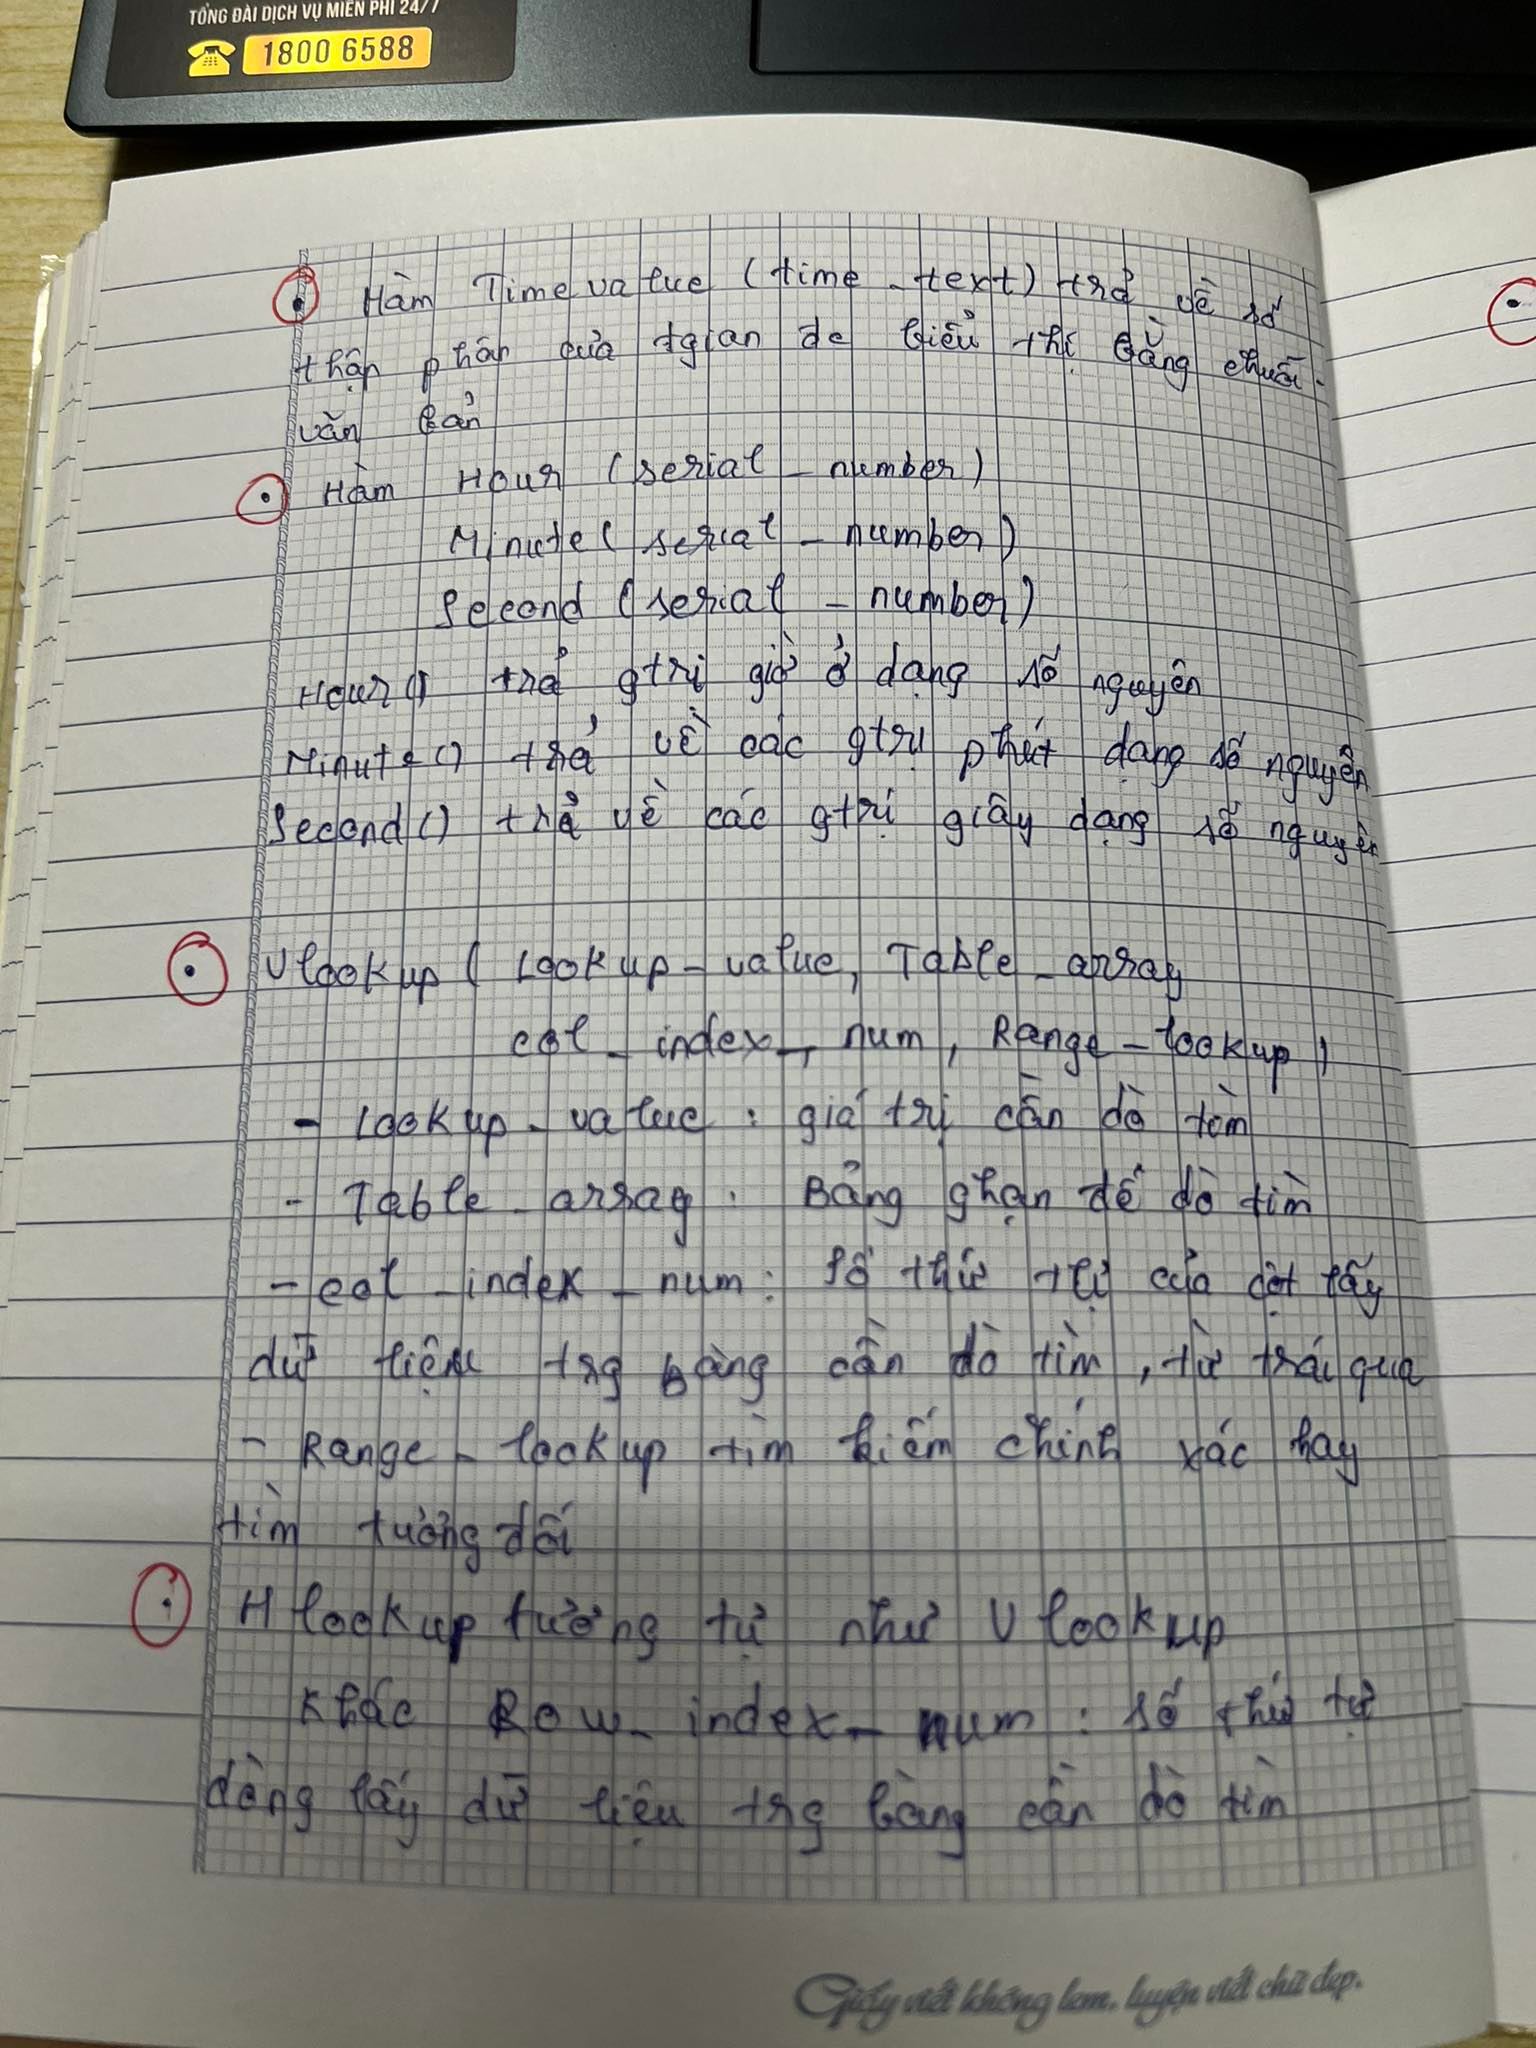 TỔNG ĐÀI DỊCH VỤ MIỄN PHÍ 24/7
1800 6588
Hàm Timevalue (time_text) trả về số
thập phân của tgian de biểu thị bằng chuỗi
văn bản
Hàm Hour (serial_number)
Minute (serial_number)
Second (serial_number)
Hour() trả gtrị giờ ở dạng số nguyên
Minute() trả về các gtrị phút dạng số nguyên
Second() trả về các gtrị giây dạng số nguyên
Vlookup (Lookup_value, Table_array
col_index_num, Range_lookup)
- Lookup_value : giá trị cần dò tìm
- Table_array : Bảng ghạn để dò tìm
- col_index_num : Số thứ tự của cột lấy
dữ liệu trg bảng cần dò tìm, từ trái qua
- Range_lookup tìm kiếm chính xác hay
tìm tương đối
Hlookup tương tự như Vlookup
Khác Row_index_num : số thứ tự
dòng lấy dữ liệu trg bảng cần dò tìm
Giấy viết không lem, luyện viết chữ đẹp.